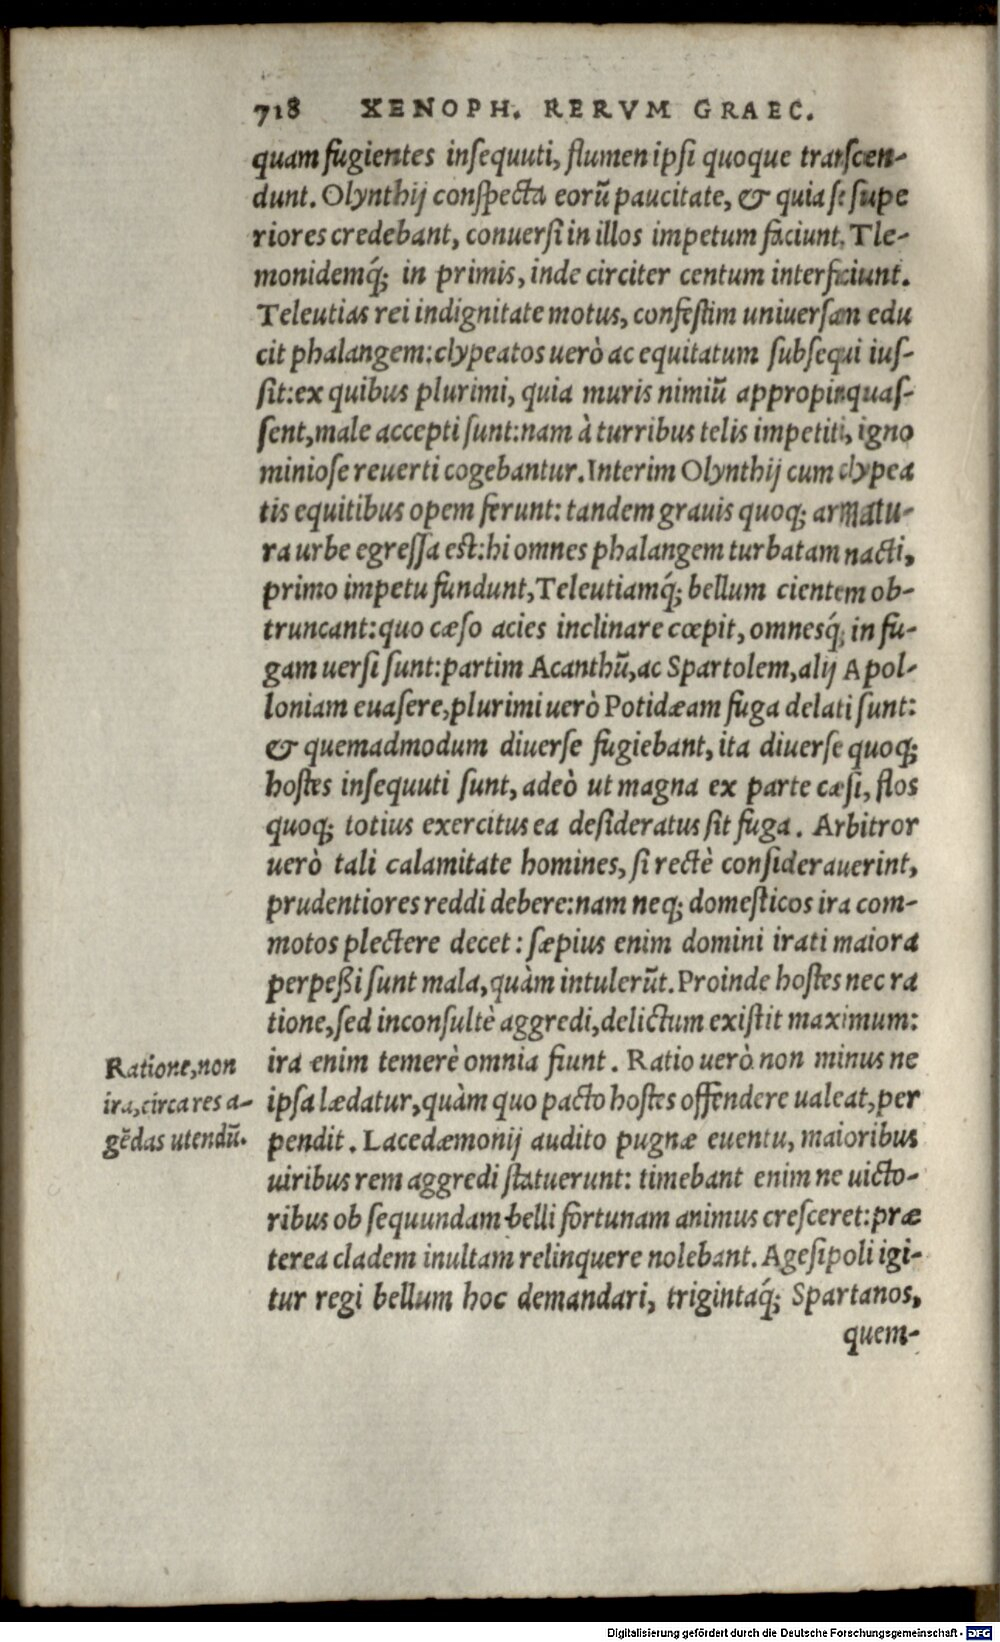 718 XENOPH. RERVM GRAEC.
quam fugientes inſequuti, flumen ipſi quoque tranſcen-
dunt. Olynthij conſpecta eorũ paucitate, & quia ſe ſupe
riores credebant, conuerſi in illos impetum faciunt. Tle-
monidemq́; in primis, inde circiter centum interficiunt.
Teleutias rei indignitate motus, confeſtim uniuerſam edu
cit phalangem: clypeatos uerò ac equitatum ſubſequi iuſ-
ſit: ex quibus plurimi, quia muris nimiũ appropinquaſ-
ſent, male accepti ſunt: nam à turribus telis impetiti, igno
minioſe reuerti cogebantur. Interim Olynthij cum clypea
tis equitibus opem ferunt: tandem grauis quoq; armatu-
ra urbe egreſſa est: hi omnes phalangem turbatam nacti,
primo impetu fundunt, Teleutiamq́; bellum cientem ob-
truncant: quo cæſo acies inclinare cœpit, omnesq́; in fu-
gam uerſi ſunt: partim Acanthũ, ac Spartolem, alij Apol-
loniam euaſere, plurimi uerò Potidæam fuga delati ſunt:
& quemadmodum diuerſe fugiebant, ita diuerſe quoq;
hoſtes inſequuti ſunt, adeò ut magna ex parte cæſi, flos
quoq; totius exercitus ea deſideratus ſit fuga. Arbitror
uerò tali calamitate homines, ſi rectè conſiderauerint,
prudentiores reddi debere: nam neq; domeſticos ira com-
motos plectere decet: ſæpius enim domini irati maiora
perpeßi ſunt mala, quàm intulerũt. Proinde hoſtes nec ra
tione, ſed inconſultè aggredi, delictum exiſtit maximum:
ira enim temerè omnia fiunt. Ratio uerò non minus ne
ipſa lædatur, quàm quo pacto hoſtes offendere ualeat, per
pendit. Lacedæmonij audito pugnæ euentu, maioribus
uiribus rem aggredi ſtatuerunt: timebant enim ne uicto-
ribus ob ſequundam belli fortunam animus creſceret: præ
terea cladem inultam relinquere nolebant. Ageſipoli igi-
tur regi bellum hoc demandari, trigintaq́; Spartanos,
quem-
Ratione, non
ira, circa res a-
gẽdas utendũ.
Digitalisierung gefördert durch die Deutsche Forschungsgemeinschaft - DFG